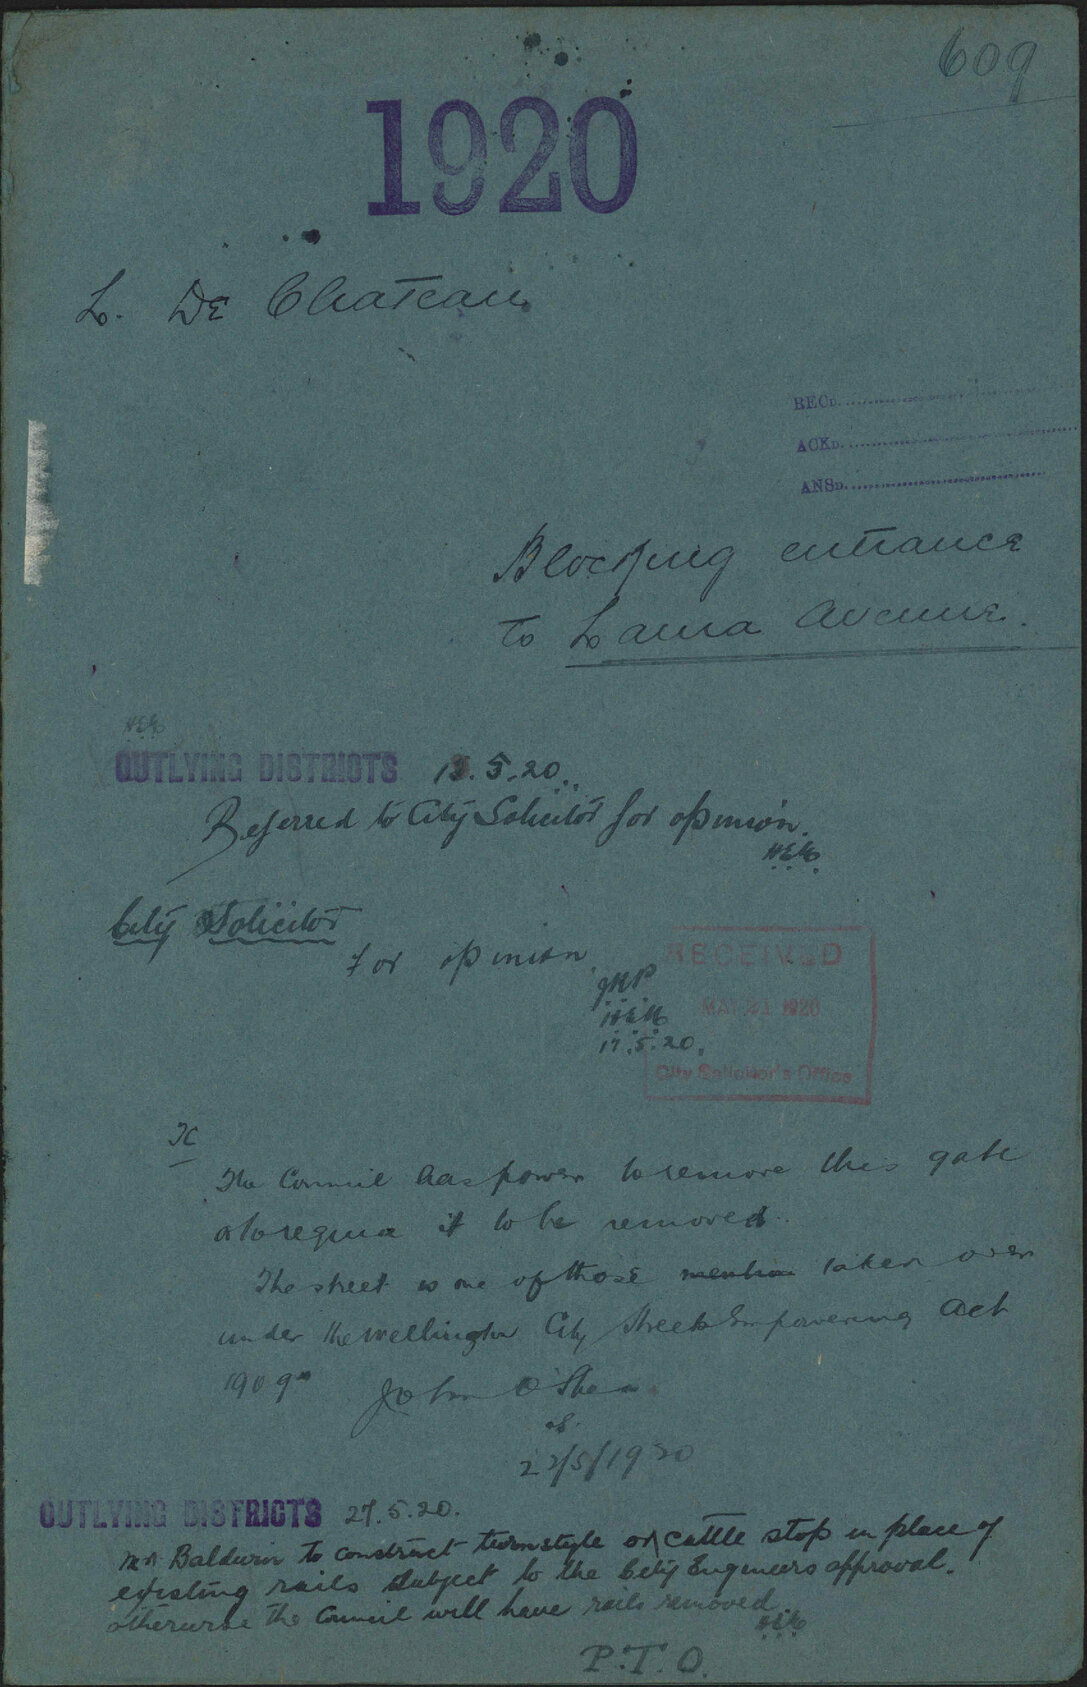 609
1920
L. De Chateau
RECD.
ACKD.
ANSD.
Blocking entrance
to Lama Avenue.
HEN
OUTLYING DISTRICTS 13.5.20.
Referred to City Solicitor for opinion.
HEN
City Solicitor
for opinion
RECEIVED
MAY 21 1920
City Solicitor's Office
17.5.20.
TC
The Council has power to remove this gate
or to require it to be removed.
The street is one of those mention taken over
under the Wellington City Streets Empowering Act
1909
John O'Shea
CS.
22/5/1920
OUTLYING DISTRICTS 27.5.20.
Mr Baldwin to construct turnstyle or cattle stop in place of
existing rails subject to the City Engineers approval.
otherwise the Council will have rails removed
P.T.O.